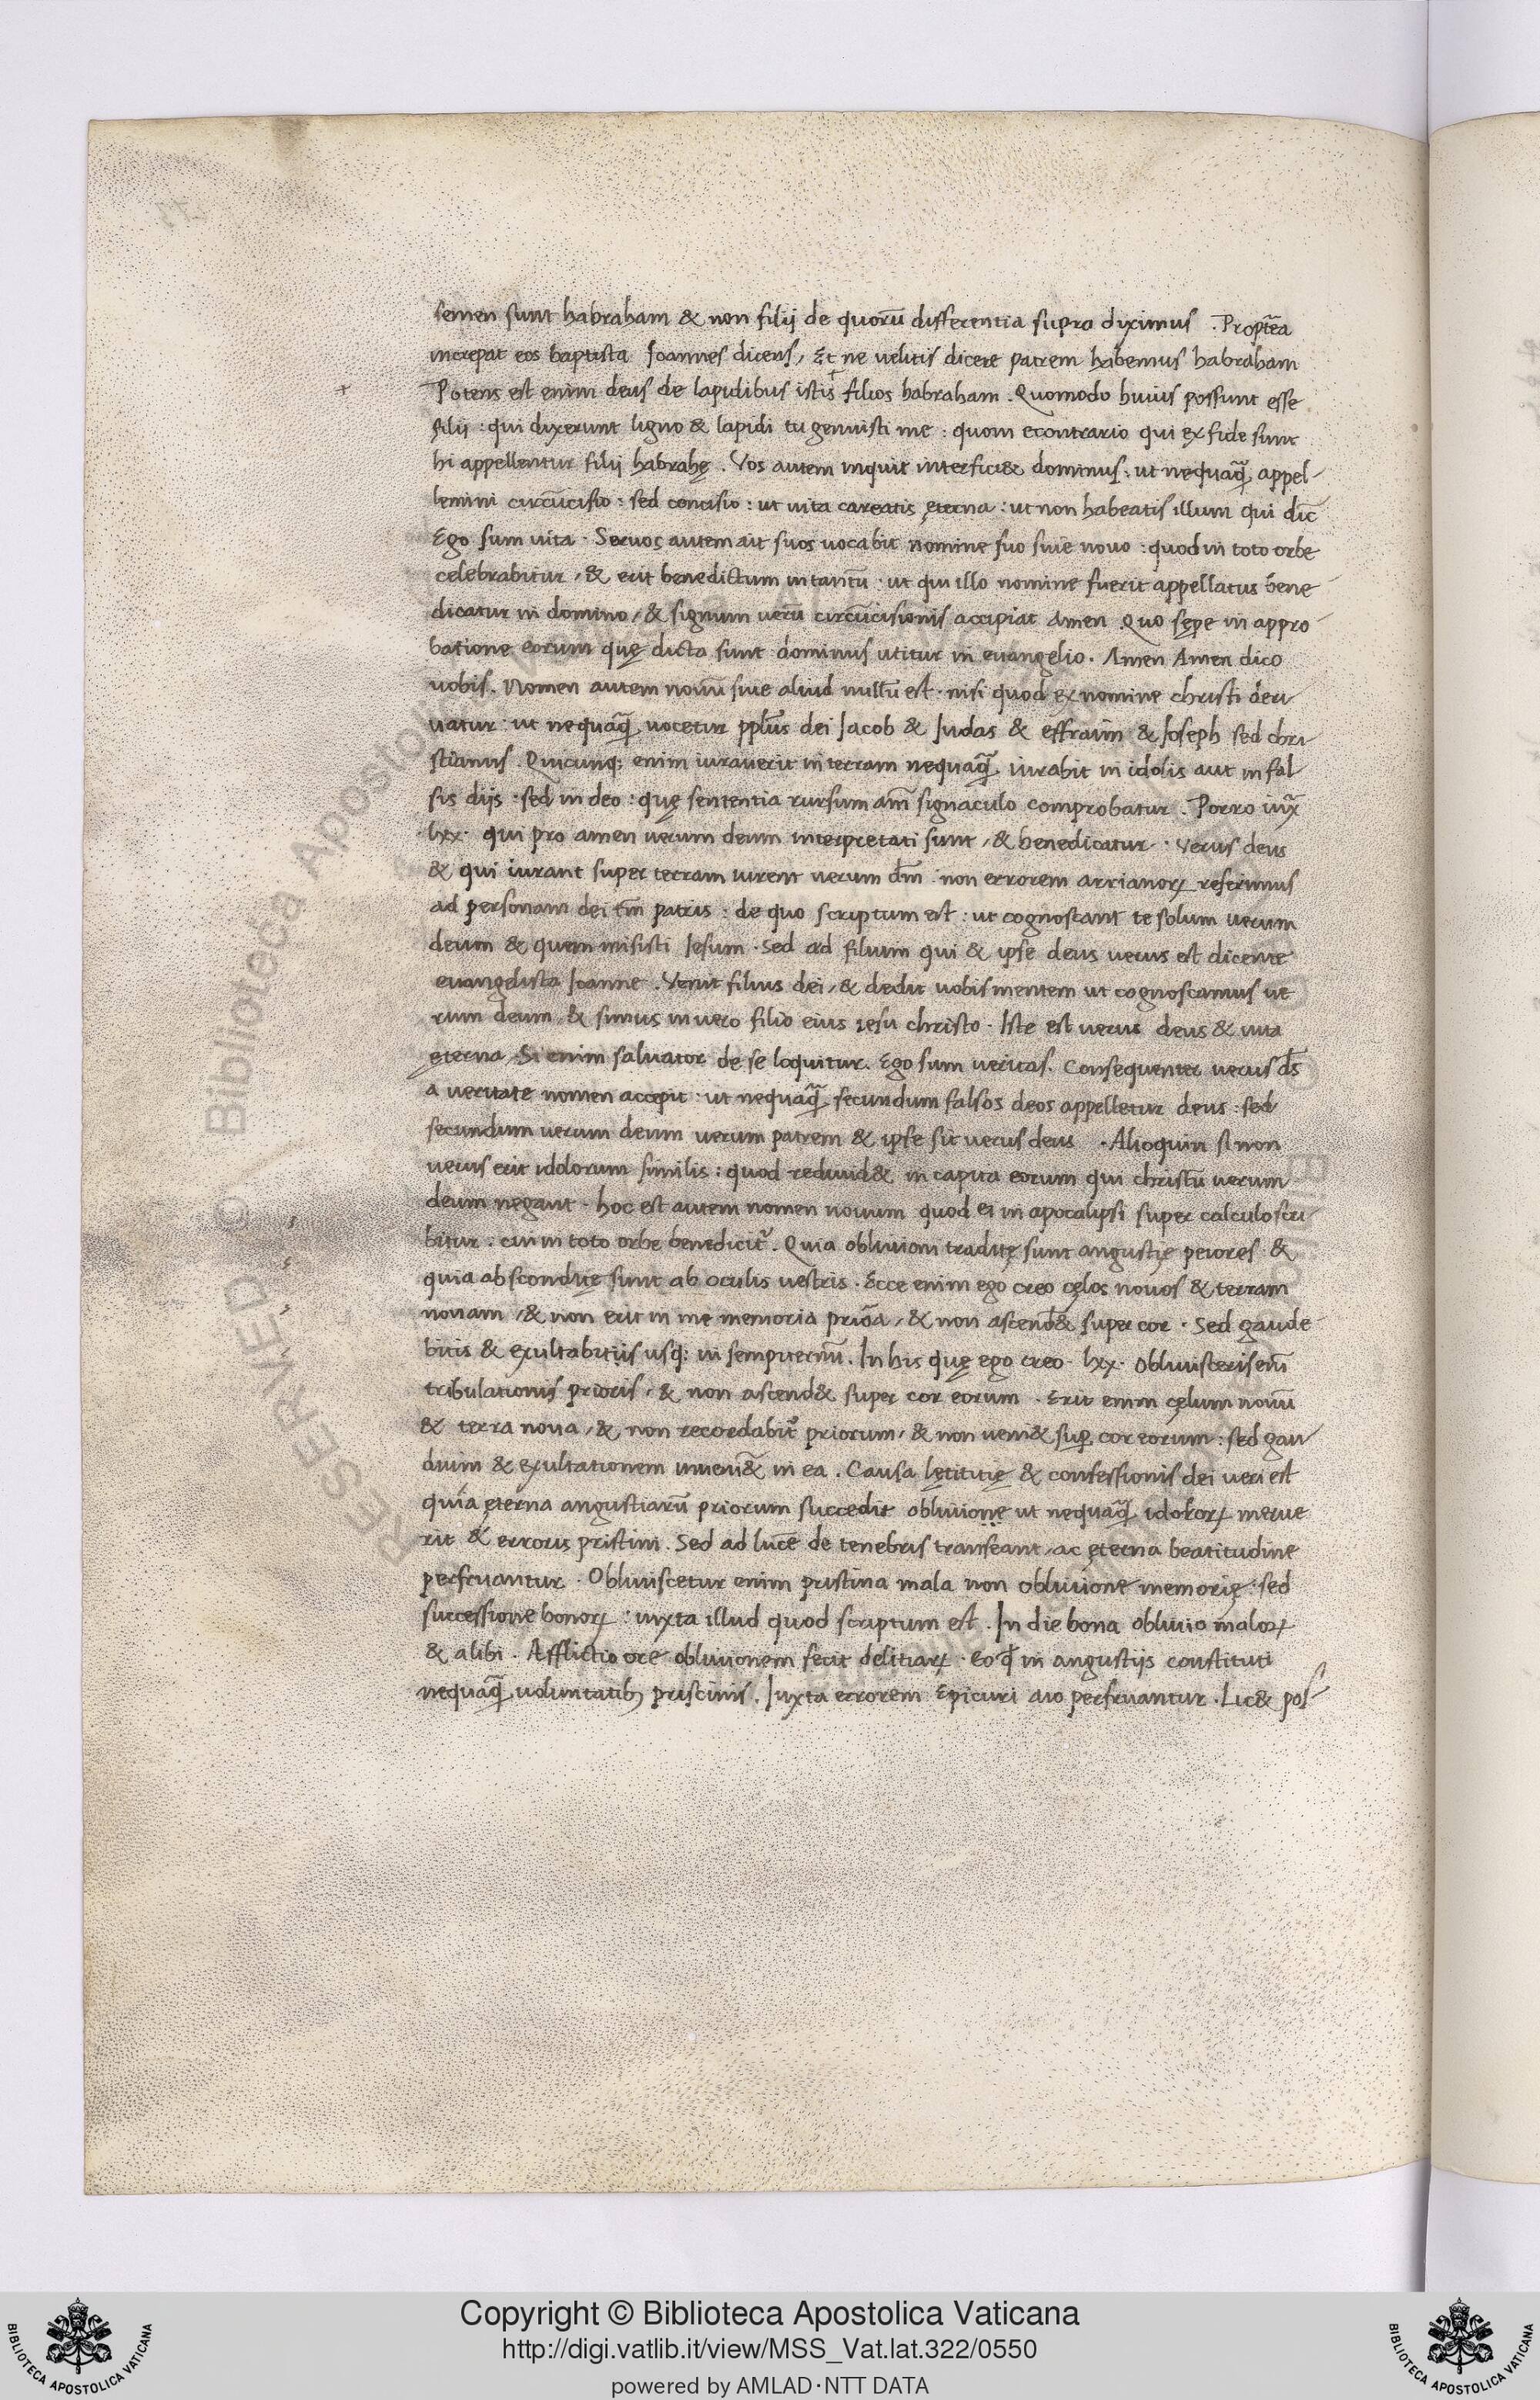 semen sunt habraham & non filij de quorū differentia supra diximus . Propt̃ea
increpat eos baptista Joannes dicens, Et ne uelitis dicere patrem habemus habraham
+ Potens est enim deus de lapidibus istis filios habraham . Quomodo huius possunt esse
filij : qui dixerunt ligno & lapidi tu genuisti me : quom econtrario qui ex fide sunt
hi appellentur filij habrahę . Vos autem inquit interfici& dominus : ut nequaq̃ appel-
lemini circūcisio : sed concisio : ut uita careatis ęterna : ut non habeatis illum qui dic̄
Ego sum uita . Seruos autem ait suos uocabit nomine suo siue nouo : quod in toto orbe
celebrabitur , & erit benedictum in tantū : ut qui illo nomine fuerit appellatus bene
dicatur in domino , & signum uerū circūcisionis accipiat Amen . Quo sępe in appro
batione eorum quę dicta sunt dominus utitur in euangelio . Amen Amen dico
uobis . Nomen autem nouū siue aliud nullū est . nisi quod ex nomine christi deri
uatur : ut nequaq̃ uocetur pplūs dei Jacob & Judas & effraim & Joseph sed chri
stianus . Quicunq; enim iurauerit in terram nequaq̃ iurabit in idolis aut in fal
sis dijs : sed in deo : quę sententia rursum am̄ signaculo comprobatur . Porro iux̃
lxx . qui pro amen uerum deum interpretati sunt , & benedicatur . Verus deus
& qui iurant super terram iurent uerum dm̄ . non errorem arrianoꝝ referimus
ad personam dei tm̄ patris : de quo scriptum est : ut cognoscant te solum uerum
deum & quem misisti Jesum . Sed ad filium qui & ipse deus uerus est dicente
euangelista Joanne . Venit filius dei , & dedit uobis mentem ut cognoscamus ue
rum deum , & simus in uero filio eius iesu christo . Iste est uerus deus & uita
ęterna , Si enim saluator de se loquitur . Ego sum ueritas . Consequenter uerus ds̄
a ueritate nomen accepit : ut nequaq̃ secundum falsos deos appelletur deus : sed
secundum uerum deum uerum patrem & ipse sit uerus deus . Alioquin si non
uerus erit idolorum similis : quod redund& in capita eorum qui christū uerum
deum negant . hoc est autem nomen nouum quod ei in apocalipsi super calculo scri
bitur : cui in toto orbe benedicit᷒ . Quia obliuioni traditę sunt angustię peiores : &
quia absconditę sunt ab oculis uestris . Ecce enim ego creo cęlos nouos & terram
nouam , & non erit in me memoria priōa , & non ascend& super cor . Sed gaude
bitis & exultabitis usq; in sempiternū . In his quę ego creo . lxx . Obliuisceris em̄
tribulationis prioris , & non ascend& super cor eorum . Erit enim cęlum nouū
& terra noua , & non recordabit᷒ priorum , & non ueni& suꝑ cor eorum : sed gau
dium & exultationem inueni& in ea . Causa lętitię & confessionis dei ueri est
quia ęterna angustiarū priorum succedit obliuione ut nequaq̃ idoloꝝ memine
rit & erroris pristini . Sed ad lucē de tenebris transeant , ac ęterna beatitudine
perfruantur . Obliuiscetur enim pristina mala non obliuione memorię : sed
successione bonoꝝ : iuxta illud quod scriptum est . In die bona obliuio maloꝝ
& alibi . Afflictio ore obliuionem fecit delitiaꝝ . Eo ꝙ in angustijs constituti
nequaq̃ uoluntatib; priscinis . Juxta errorem Epicuri aio perfruantur . Lic& pos-
Copyright © Biblioteca Apostolica Vaticana
http://digi.vatlib.it/view/MSS_Vat.lat.322/0550
powered by AMLAD·NTT DATA
BIBLIOTECA APOSTOLICA VATICANA
BIBLIOTECA APOSTOLICA VATICANA